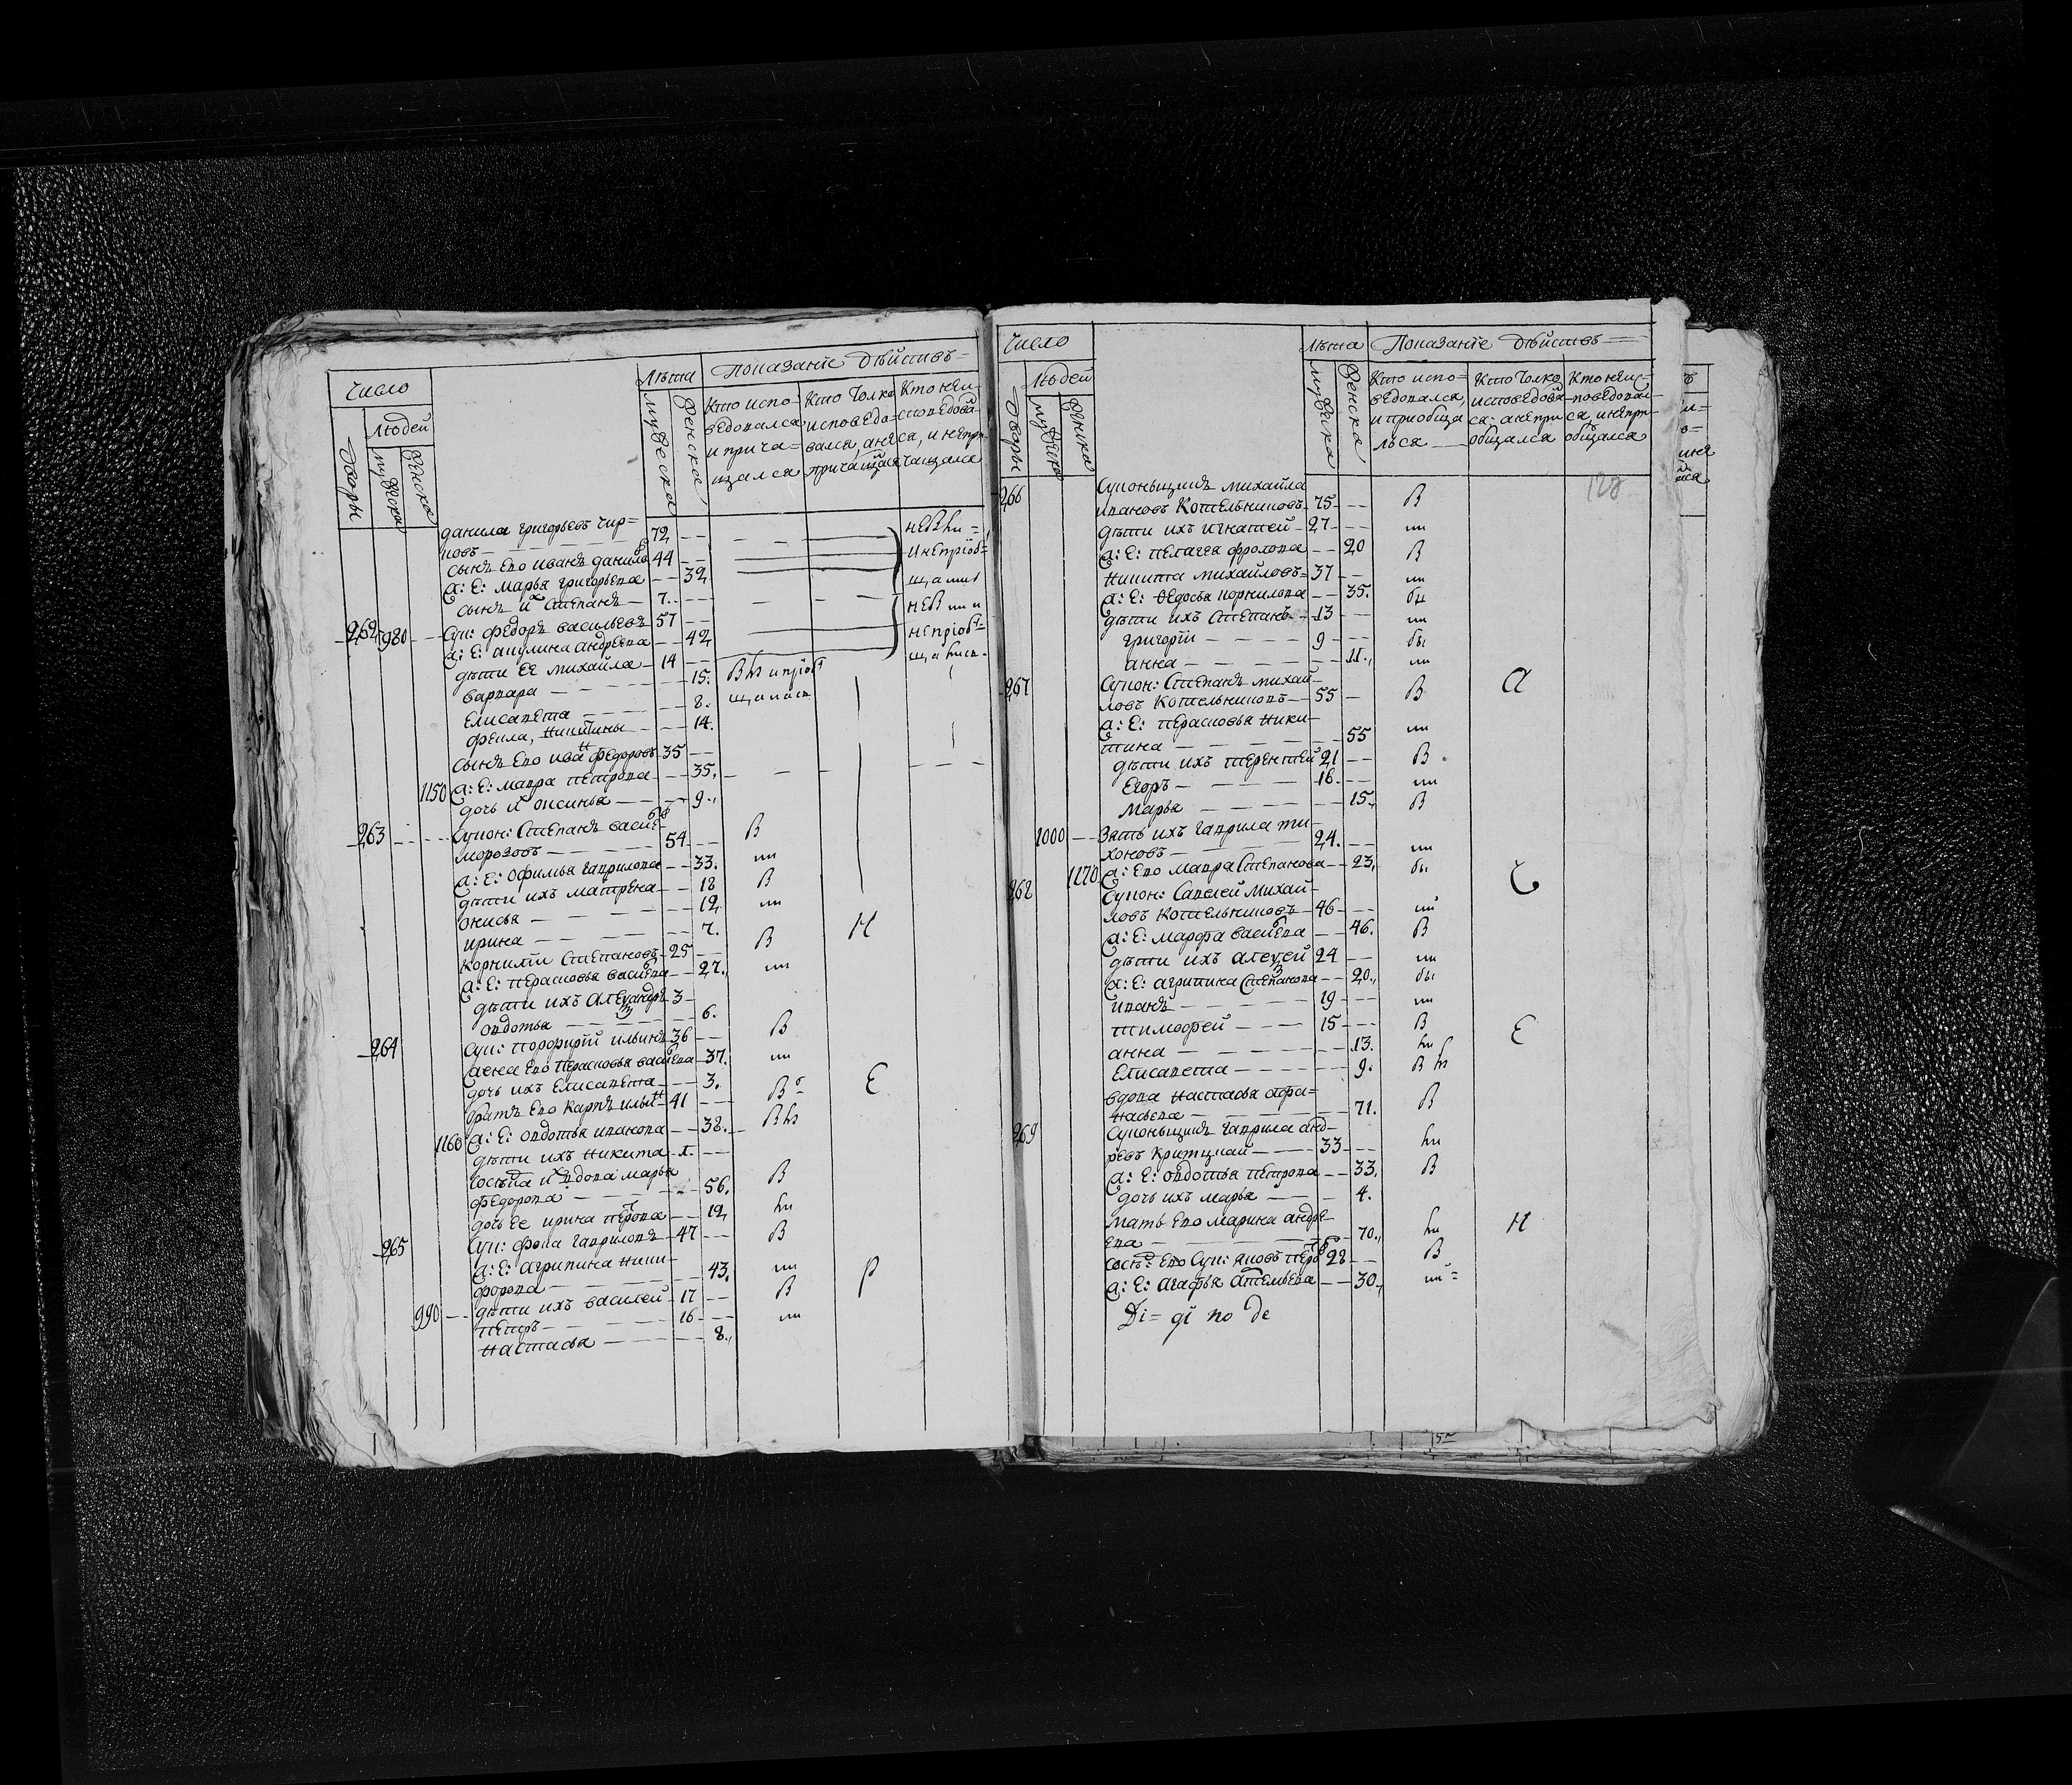 число
людей
дворы
мужеска
женска
лѣта
мужеска
женска
показанїе дѣйствъ
кто испо-
ведовался
и прича=
щался
кто толко
исповедо-
вался, а не
причащался
кто неи-
споведовал-
ся, и непри-
чащался
данила григорьевъ чир=
ковъ 72
сынъ ево иванъ данилов 44
ж: Е: марья григорьева 32
сынъ их степанъ 7
262 980 Суп: федоръ васильевъ 57
ж: Е: акулина андреева 42
дѣти ее михайла 14
варвара 15.
Елисавета 8.
фекла, никитины 14.
сынъ ево иван федоровъ 35
1150 ж: Е: мавра петрова 35.
дочь их оксинья 9.
263 Супон: Степанъ васильев
морозовъ 54 В
ж: Е: офимья гаврилова 33.
дѣти ихъ матрена 18 В
онисья 12
ирина 7.
корнилїй степановъ 25 В
ж: Е: перасковья васильева 27.
дѣти ихъ Александръ 3
овдотья 6.
264 Суп: порфирїй ильинъ 36 В
жена ево перасковья васильева 37.
дочь ихъ Елисавета 3.
братъ ево карпъ ильин 41 В
1160 ж: Е: овдотья иванова 38.
дѣти ихъ никита 1.
соседка их вдова марья
федорова 56. В
дочь ее ирина петрова 12
265 Суп: фока гавриловъ 47 В
ж: Е: агрипина ники-
форова 43.
990 дѣти ихъ василей 17 В
петръ 16
настасья 8.
Н
Е
Р
число
людей
дворы
женска
лѣта
мужеска
женска
показанїе дѣйствъ
кто испо-
ведовался,
и приобща
лься
кто толко
исповедовал
ся: а непри
общался
кто неис-
поведовал-
ся, и непри-
общался
128
266 Супоньщикъ михайла
ивановъ котельниковъ 75 В
дѣти ихъ игнатей 27
ж: Е: пелагея фролова 20 В
никита михайловъ 37
ж: Е: Ѳедосья корнилова 35.
дѣти ихъ степанъ 13
григорїй 9
анна 11.
267 Супон: Степанъ михай-
ловъ котельниковъ 55 В
ж: Е: перасковья ники-
тина 55
дѣти ихъ терентей 21 В
Егоръ 16.
марья 15. В
1000 Зять ихъ гаврила ти-
хоновъ 24.
1170 ж: Ево мавра степанова 23.
268 Супон: Савелей михай-
ловъ котельниковъ 46
ж: Е: марфа васильева 46. В
дѣти ихъ алексей 24
ж: Е: агрипина степанова 20.
иванъ 19
тимофей 15 В
анна 13.
Елисавета 9.
вдова настасья афа=
насьева 71. В
269 Супоньщикъ гаврила анд-
ревъ 33
ж: Е: овдотья петрова 33. В
дочь ихъ марья 4.
мать ево марина андре-
ева 70.
сосед: ево Суп: яковъ петров 28 В
ж: Е: агафья 30.
а
С
Е
Н